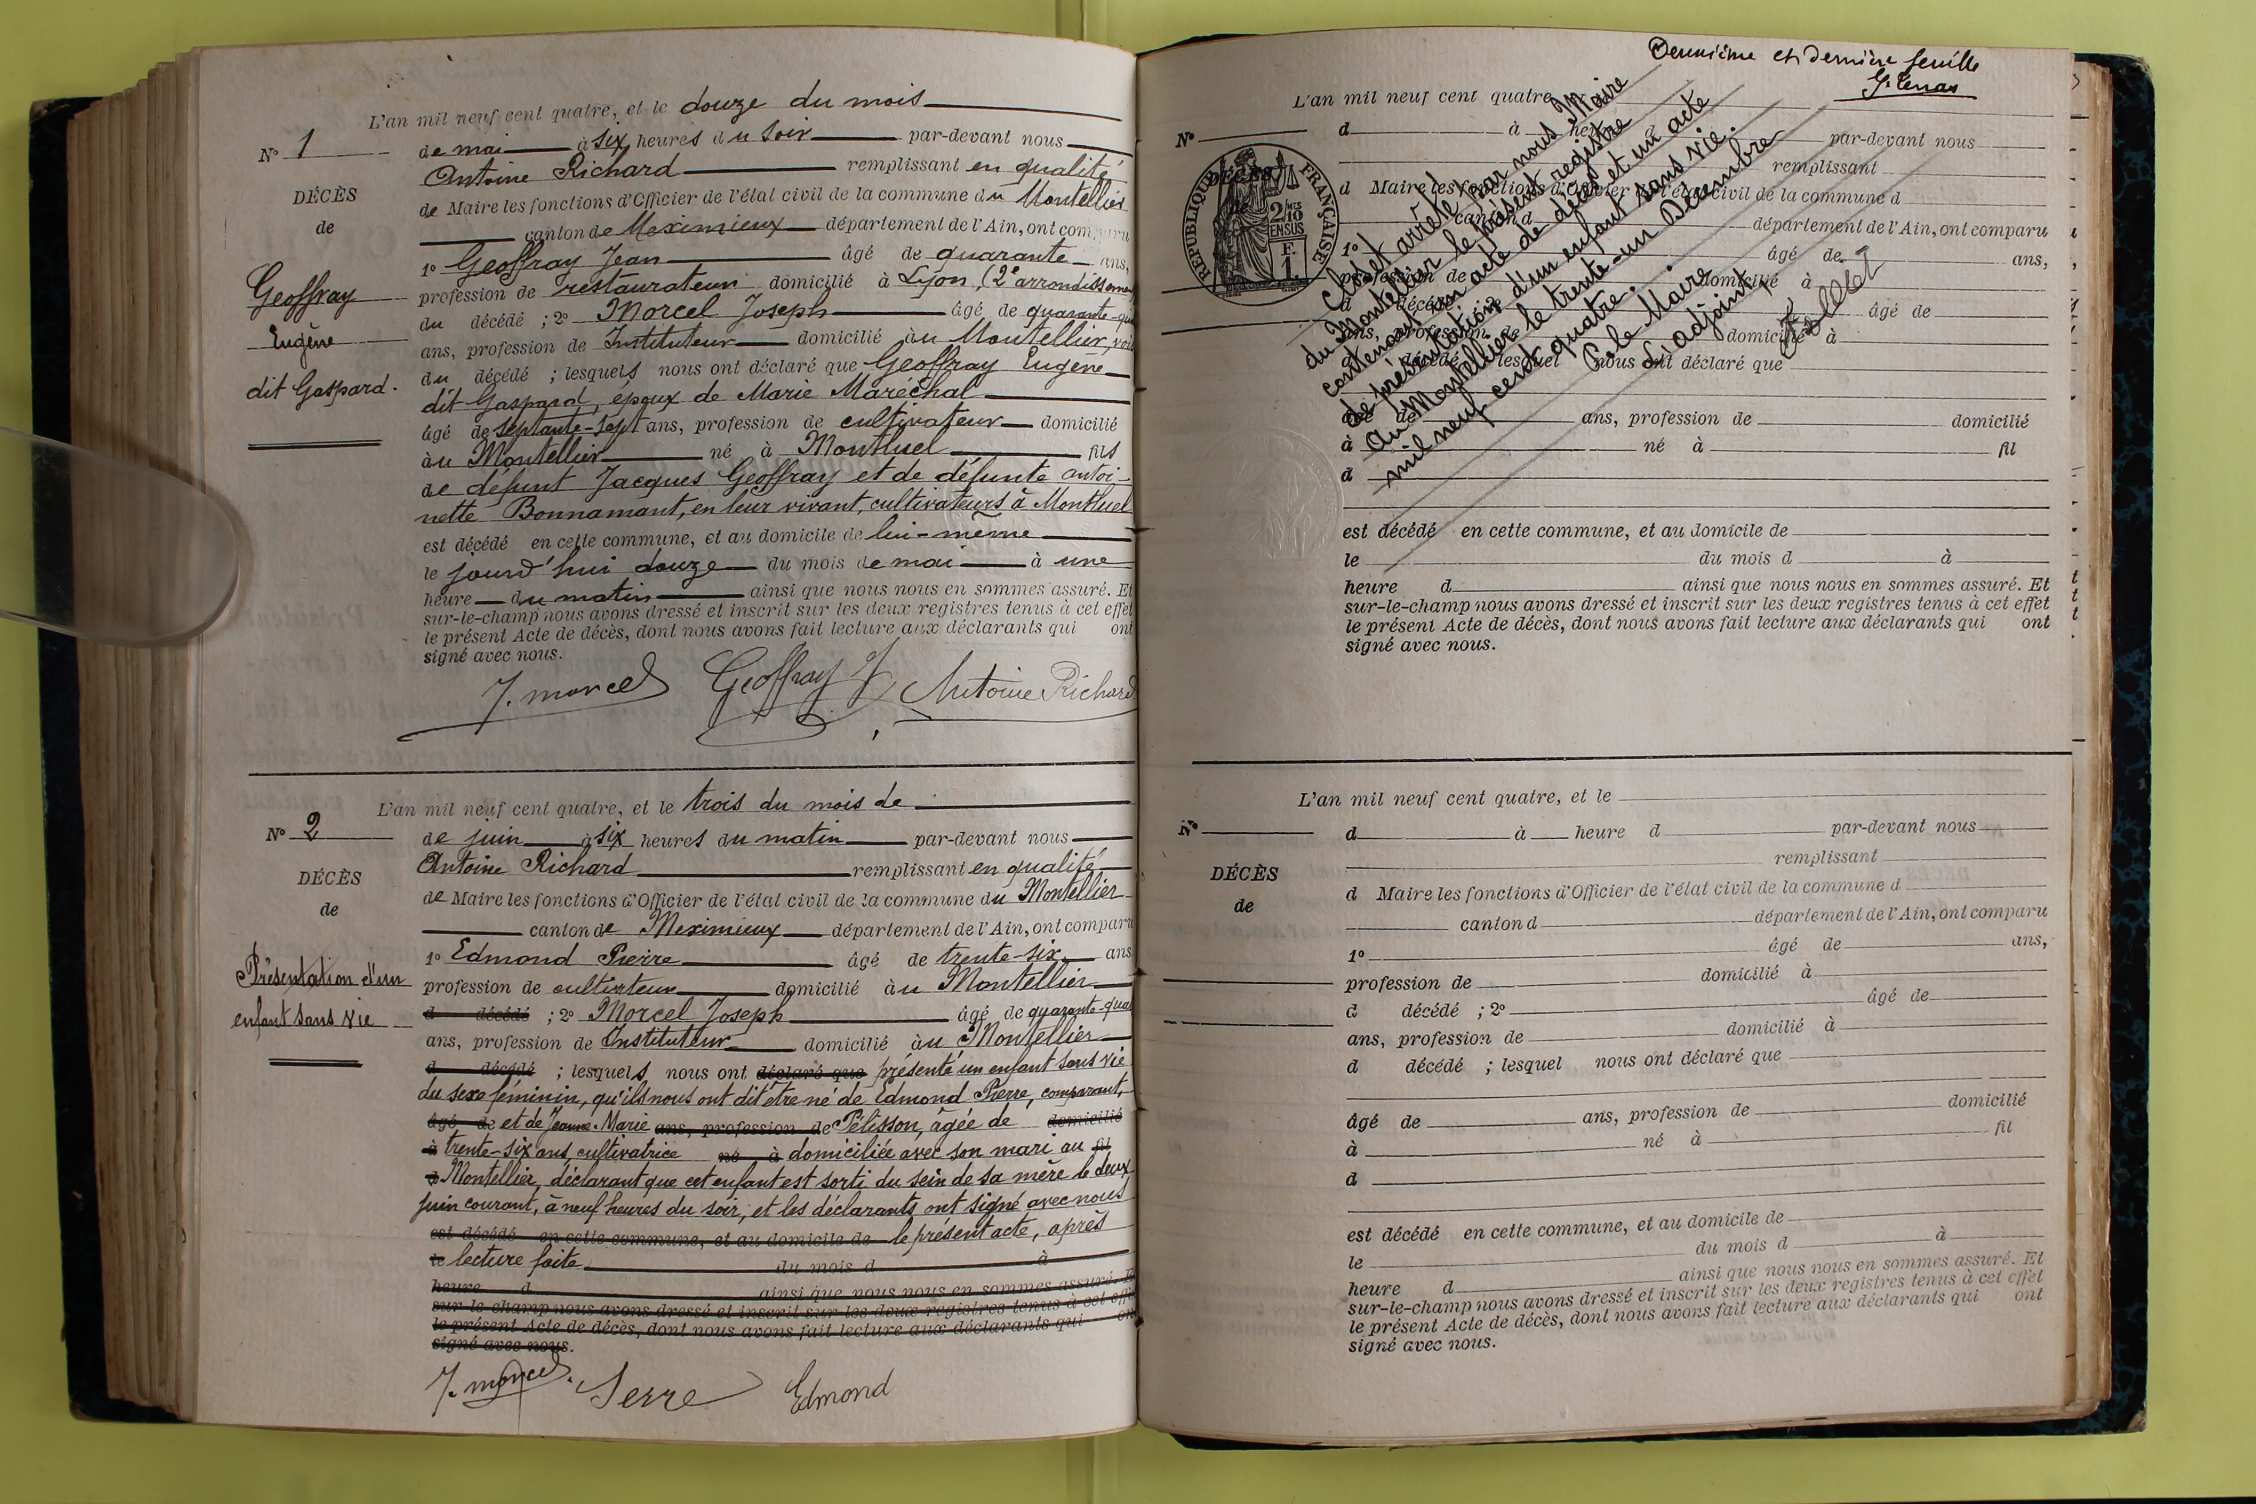 L'an mil neuf cent quatre, et le douze du mois
N° 1
de mai à six heures du soir par-devant nous
Antoine Richard remplissant en qualité
DÉCÈS
de Maire les fonctions d'Officier de l'état civil de la commune du Montellier
de
canton de Meximieux département de l'Ain, ont comparu
1° Geoffray Jean âgé de quarante ans,
Geoffray
profession de restaurateur domicilié à Lyon, (2e arrondissement
du décédé ; 2° Morcel Joseph âgé de quarante-qua
Eugène
ans, profession de Instituteur domicilié au Montellier,
dit Gaspard.
du décédé ; lesquels nous ont déclaré que Geoffray Eugène
dit Gaspard, époux de Marie Maréchal
âgé de septante-sept ans, profession de cultivateur domicilié
au Montellier né à Montluel fils
de défunt Jacques Geoffray et de défunte Antoi-
nette Bonnamant, en leur vivant, cultivateurs à Montluel
est décédé en cette commune, et au domicile de lui-même
le jourd'hui douze du mois de mai à une
heure du matin ainsi que nous nous en sommes assuré. Et
sur-le-champ nous avons dressé et inscrit sur les deux registres tenus à cet effet
le présent Acte de décès, dont nous avons fait lecture aux déclarants qui ont
signé avec nous.
J. morcel Geoffray J Antoine Richard
L'an mil neuf cent quatre, et le trois du mois de
N° 2
de juin à six heures du matin par-devant nous
Antoine Richard remplissant en qualité
DÉCÈS
de Maire les fonctions d'Officier de l'état civil de la commune du Montellier
de
canton de Meximieux département de l'Ain, ont comparu
1° Edmond Pierre âgé de trente-six ans
Présentation d'un
profession de cultivateur domicilié au Montellier
enfant sans vie
d décédé ; 2° Morcel Joseph âgé de quarante-qua
ans, profession de Instituteur domicilié au Montellier
d décédé ; lesquels nous ont déclaré que présenté un enfant sans vie
du sexe féminin, qu'ils nous ont dit être né de Edmond Pierre, comparant,
âgé de et de Jeanne-Marie ans, profession de Pélisson, âgée de domicilié
à trente-six ans, cultivatrice né à domiciliée avec son mari au fil
d Montellier, déclarant que cet enfant est sorti du sein de sa mère le deux
juin courant, à neuf heures du soir, et les déclarants ont signé avec nous
est décédé en cette commune, et au domicile de le présent acte, après
le lecture faite du mois d à
heure d ainsi que nous nous en sommes assuré. Et
sur-le-champ nous avons dressé et inscrit sur les deux registres tenus à cet effet
le présent Acte de décès, dont nous avons fait lecture aux déclarants qui ont
signé avec nous.
J. morcel Serre Edmond
Deuxième et dernière feuille
L'an mil neuf cent quatre
N°
d à heure d par-devant nous
remplissant
d Maire les fonctions d'Officier de l'état civil de la commune d
canton d département de l'Ain, ont comparu
1° âgé de ans,
profession de domicilié à
d décédé ; 2° âgé de
ans, profession de domicilié à
d décédé ; lesquel nous ont déclaré que
âgé de ans, profession de domicilié
à né à fil
d
est décédé en cette commune, et au domicile de
le du mois d à
heure d ainsi que nous nous en sommes assuré. Et
sur-le-champ nous avons dressé et inscrit sur les deux registres tenus à cet effet
le présent Acte de décès, dont nous avons fait lecture aux déclarants qui ont
signé avec nous.
RÉPUBLIQUE FRANÇAISE
2/10 MES
EN SUS
F.
1.
Clos et arrêté par nous Maire
du Montellier le présent registre
contenant un acte de décès et un acte
de présentation d'un enfant sans vie.
Au Montellier le trente-un Décembre
mil neuf cent quatre.
P. le Maire
L'adjoint
L'an mil neuf cent quatre, et le
N°
d à heure d par-devant nous
remplissant
DÉCÈS
d Maire les fonctions d'Officier de l'état civil de la commune d
de
canton d département de l'Ain, ont comparu
1° âgé de ans,
profession de domicilié à
d décédé ; 2° âgé de
ans, profession de domicilié à
d décédé ; lesquel nous ont déclaré que
âgé de ans, profession de domicilié
à né à fil
d
est décédé en cette commune, et au domicile de
le du mois d à
heure d ainsi que nous nous en sommes assuré. Et
sur-le-champ nous avons dressé et inscrit sur les deux registres tenus à cet effet
le présent Acte de décès, dont nous avons fait lecture aux déclarants qui ont
signé avec nous.